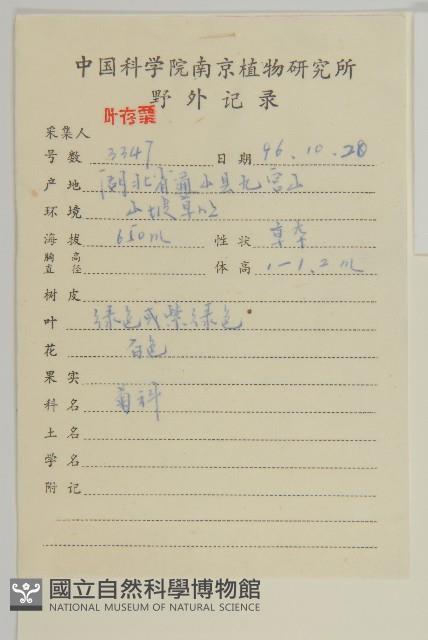 中国科学院南京植物研究所
野外记录
采集人 叶存粟
号数 3347 日期 96.10.20
产地 湖北省通山县九宫山
环境 山坡草丛
海拔 650m 性状 草本
胸高直径 体高 1-1.2m
树皮
叶 绿色或紫绿色
花 白色
果实
科名 菊科
土名
学名
附记
國立自然科學博物館
NATIONAL MUSEUM OF NATURAL SCIENCE